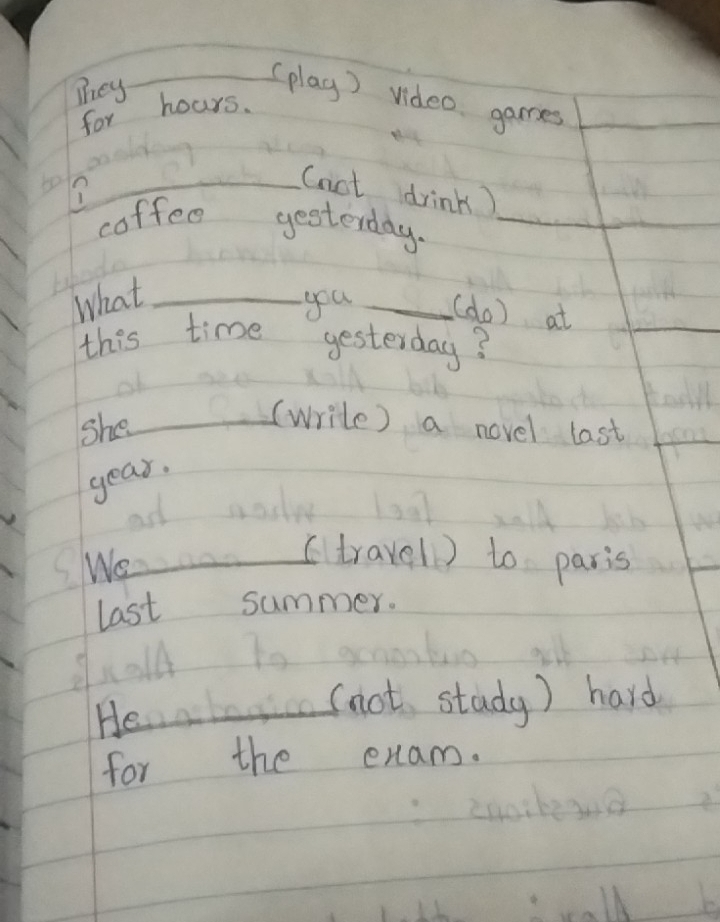 They ________ (play) video games
for hours.
? ________ (not drink) ________
coffee yesterday.
What ________ you ____ (do) at
this time yesterday?
She ________ (write) a novel last
year.
We ________ (travel) to paris
last summer.
He ________ (not study) hard
for the exam.